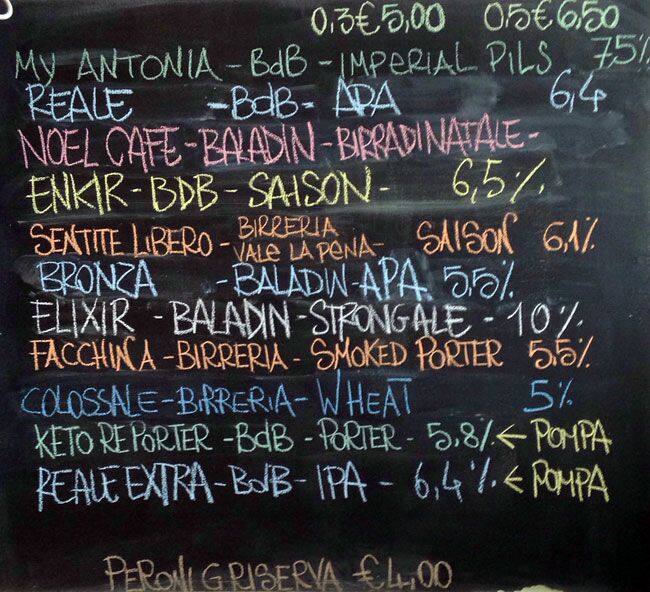 0,3 € 5,00 0,5 € 6,50
MY ANTONIA - BdB - IMPERIAL PILS 7,5%
REALE - BdB - APA 6,4
NOEL CAFE - BALADIN - BIRRA DI NATALE -
ENKIR - BDB - SAISON - 6,5%
SENTITE LIBERO - BIRRERIA VALE LA PENA - SAISON 6,1%
BRONZA - BALADIN - APA. 5,5%
ELIXIR - BALADIN - STRONG ALE - 10%
FACCHINA - BIRRERIA - SMOKED PORTER 5,5%
COLOSSALE - BIRRERIA - WHEAT 5%
KETO REPORTER - BdB - PORTER - 5,8% ← POMPA
REALE EXTRA - BdB - IPA - 6,4% ← POMPA
PERONI G RISERVA € 4,00